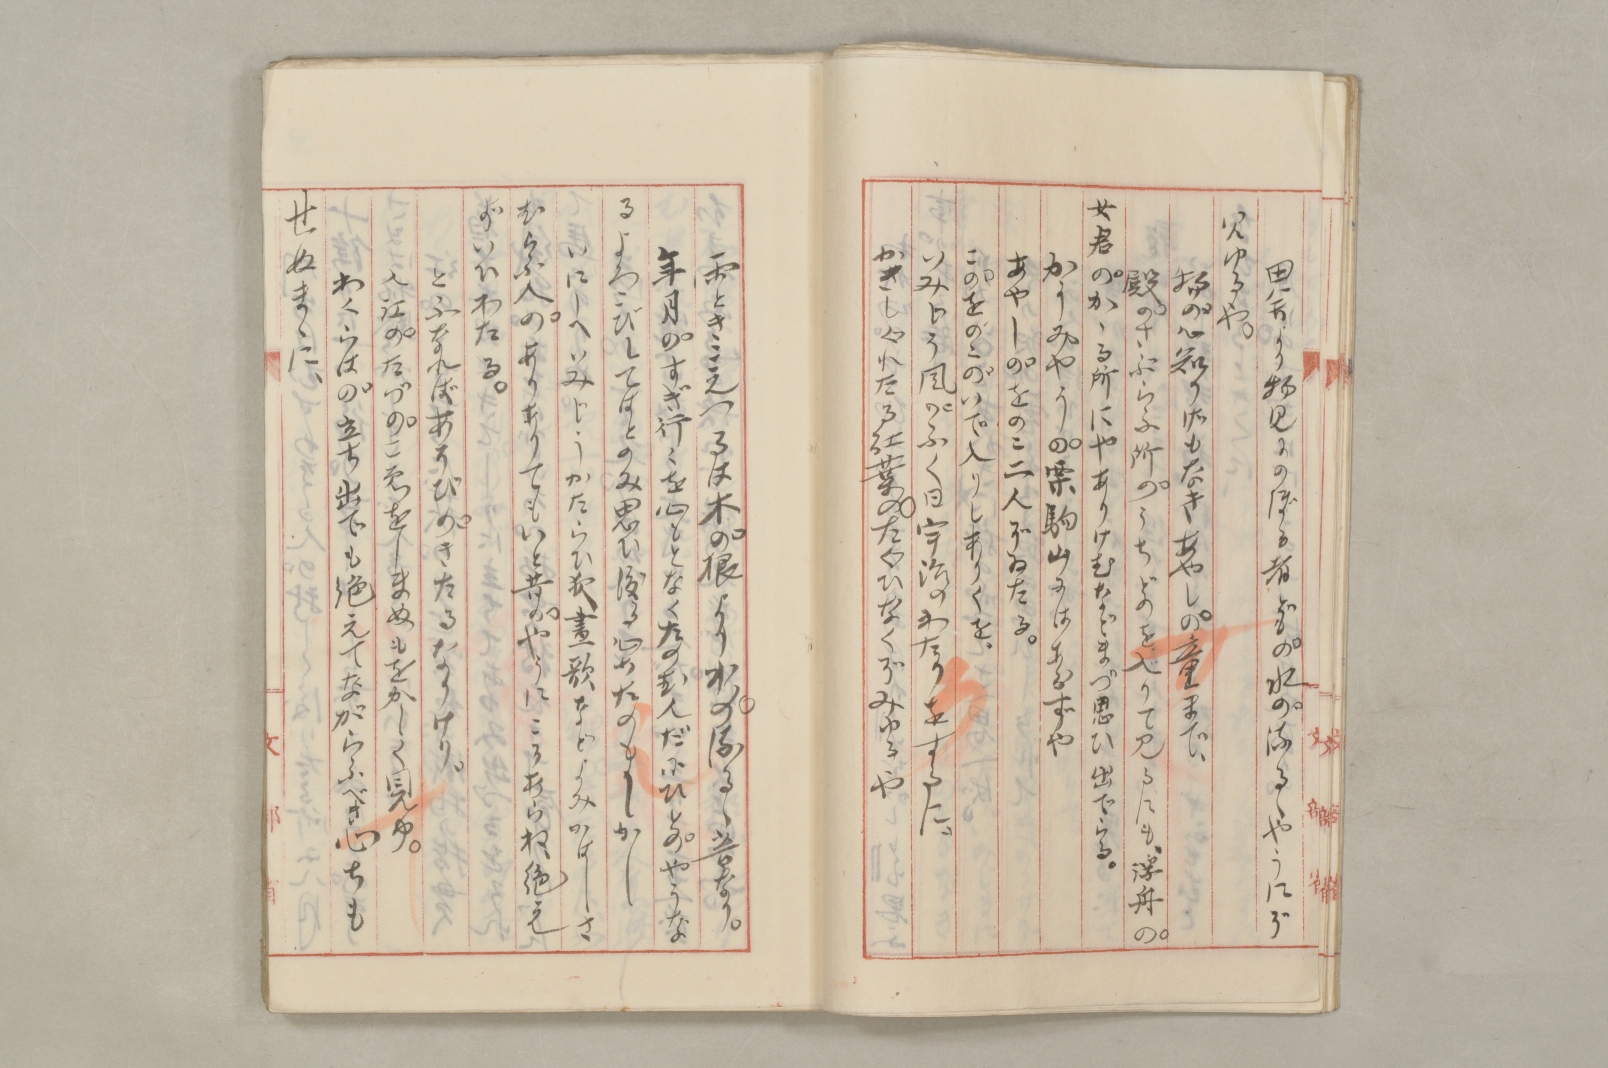 田舎より物見にのぼる者どもの水の流るゝやうにぞ
見ゆるや。
物の心知りげもなきあやしの童まで、
殿のさぶらふ所のうちどのを入りて見るにも、浮舟の
女君のかゝる所にやありけむなどまづ思ひ出でらる。
かうみやうの栗駒山にはあらずや
あやしのをのこ二人ぞゐたる。
このをのこのいで入りしありくを、
いみじう風のふく日宇治のわたりをするに、
かきしぐれたる紅葉のたぐひなくぞみゆるや
雨ときこえつるは木の根より水の流るゝ音なり。
年月のすぎ行くを心もとなくたのむ人だにひとのやうな
るよろこびしてはとのみ思ひ渡る心ちたのもしかし
いにしへいみじうかたらひ夜晝歌などよみかはしさ
むらふ人のありありてもいと昔のやうにこそあらね絶え
ずいひわたる。
とふなればあそびめきたるなりけり。
入江のたづのこゑをしまぬもをかしく見ゆ。
わくらはの立ち出でも絶えてながらふべき心ちも
せぬまゝに、
文
部
省
文
部
省